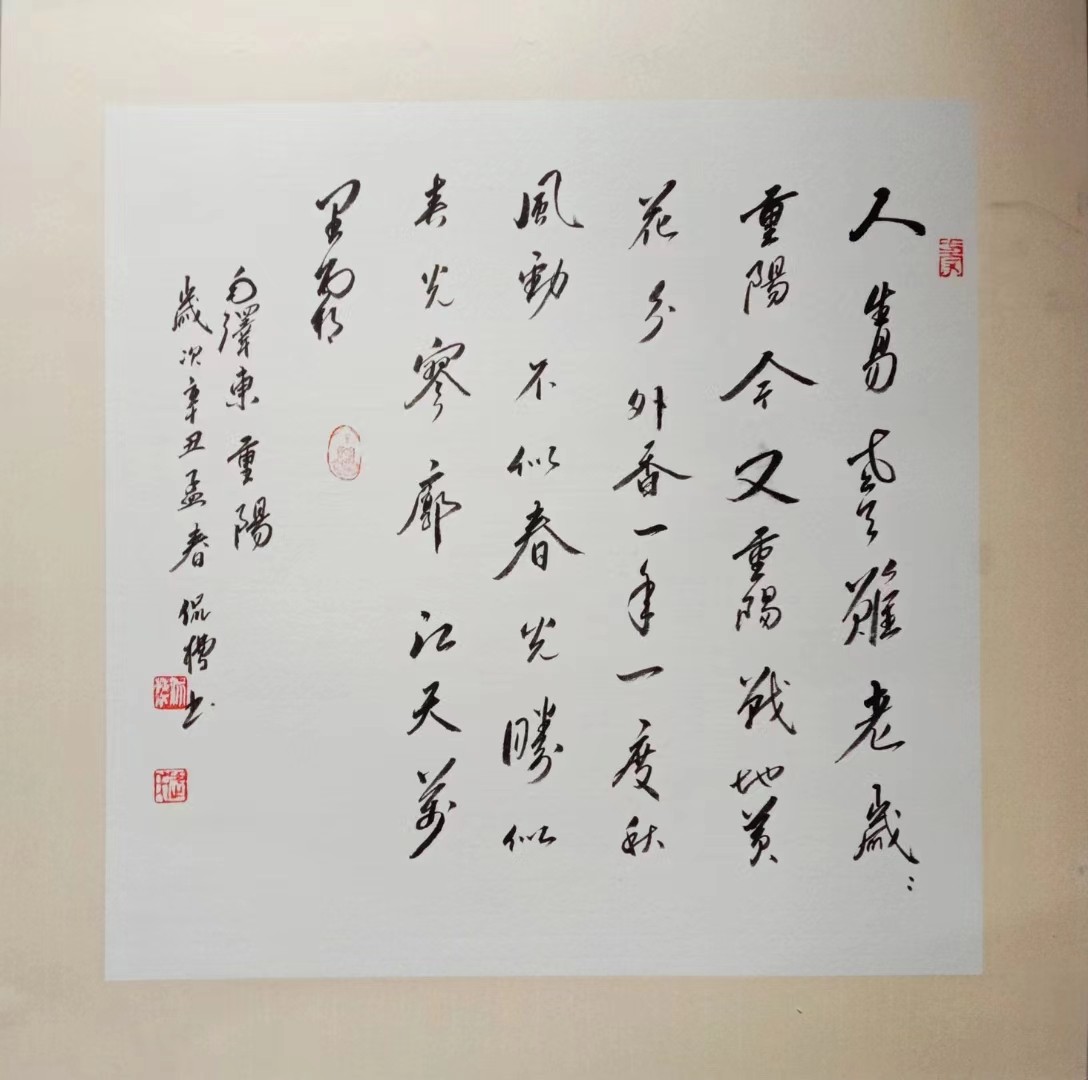 人生易老天難老歲:
重陽今又重陽戰地黃
花分外香一年一度秋
風勁不似春光勝似
春光寥廓江天萬
里霜
毛澤東重陽
歲次辛丑孟春侃書